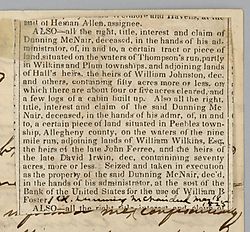 suit of Heman Allen, assignee.
ALSO—all the right, title, interest and claim of
Dunning McNair, deceased, in the hands of his ad-
ministrator, of, in and to, a certain tract or piece of
land situated on the waters of Thompson's run, partly
in Wilkins and Plum townships, and adjoining lands
of Hall's heirs, the heirs of William Johnston, dec.
and others, containing fifty acres more or less, on
which there are about four or five acres cleared, and
a few logs of a cabin built up. Also all the right,
title, interest and claim of the said Dunning Mc
Nair, deceased, in the hands of his admr, of, in and
to, a certain piece of land situated in Peebles town-
ship, Allegheny county, on the waters of the nine
mile run, adjoining lands of William Wilkins, Esq.
the heirs of the late John Ferree, and the heirs of
the late David Irwin, dec, containing seventy
acres, more or less. Seized and taken in execution
as the property of the said Dunning McNair, dec'd,
in the hands of his administrator, at the suit of the
Bank of the United States for the use of William B
Foster
ALSO—all the